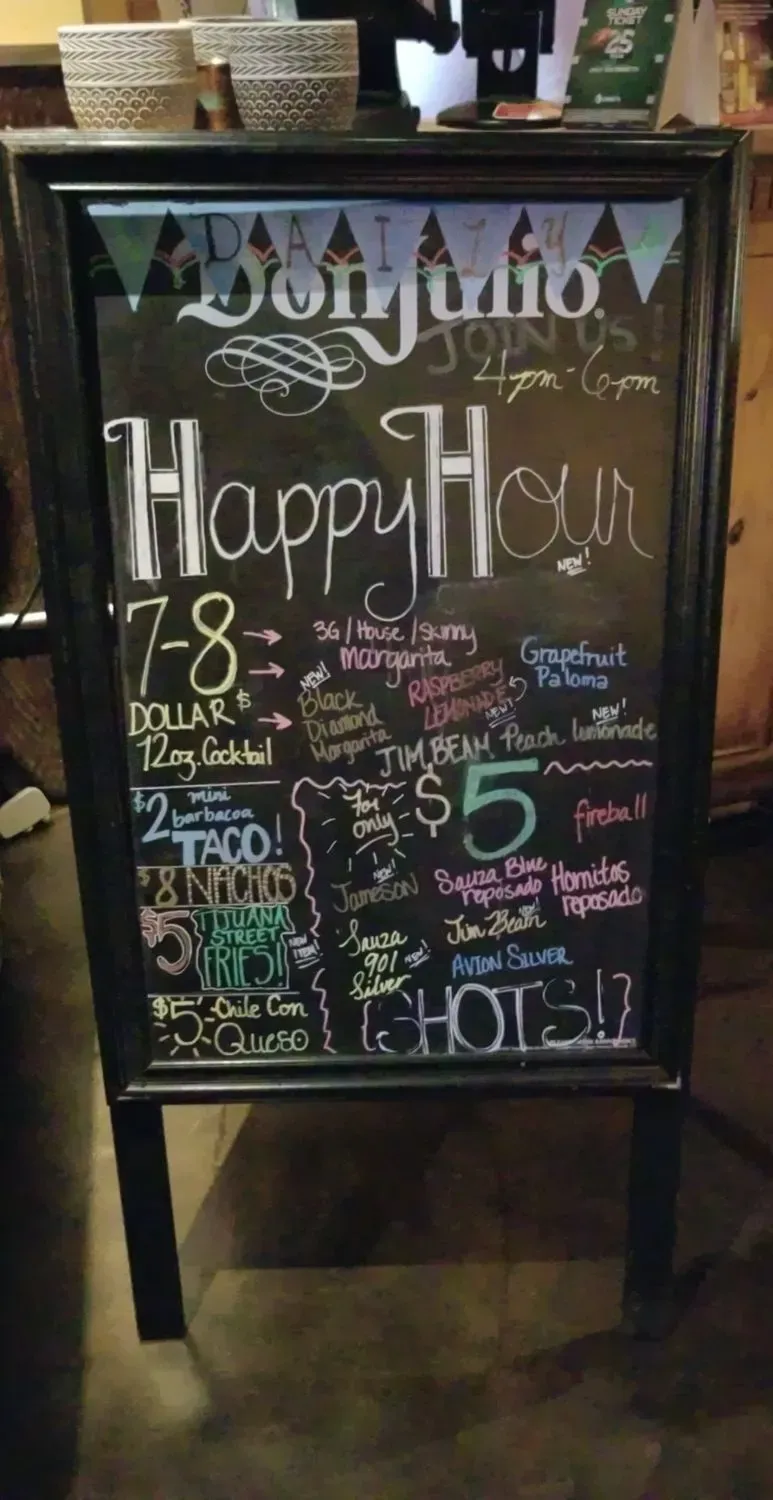 SUNDAY
TICKET
25
DAILY
Don Julio
JOIN US!
4pm-6pm
Happy Hour
NEW!
7-8
DOLLAR$
12oz. Cocktail
3G / House / Skinny
Margarita
NEW!
Black
Diamond
Margarita
RASPBERRY
LEMONADE
NEW!
Grapefruit
Paloma
NEW!
JIM BEAM Peach lemonade
$2 mini
barbacoa
TACO!
$8 NACHOS
$5 TIJUANA
STREET
FRIES!
NEW
ITEM!
$5 Chile Con
Queso
for
only
$5
fireball
NEW!
Jameson
Sauza Blue
reposado
Hornitos
reposado
Sauza
901
Silver
NEW!
Jim Beam
NEW!
AVION SILVER
SHOTS!